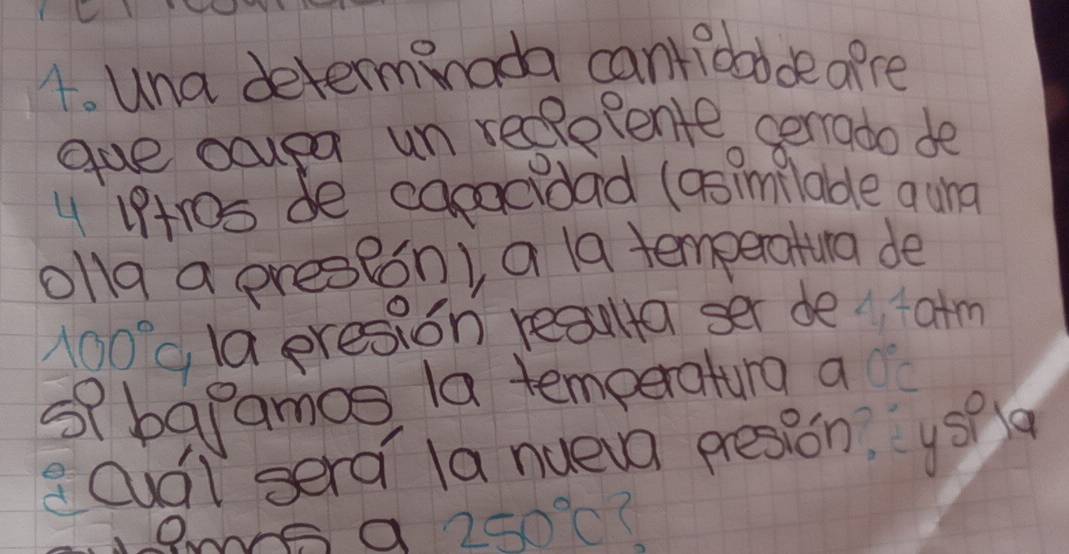 1. Una determinada cantidad de aire
que ocupa un recipiente cerrado de
4 litros de capacidad (asimilade a una
olla a presión), a la temperatura de
100°c, la presión resulta ser de 1,1 atm
si bajamos la temperatura a 0°c
¿Cuál será la nueva presión? ¿y si la
a 250°C?